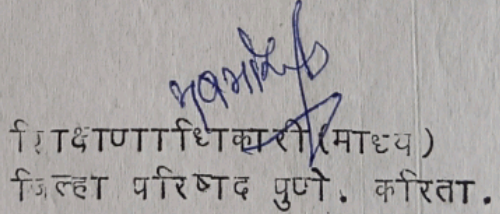 शिक्षणाधिकारी (माध्य)
जिल्हा परिषद पुणे. करिता.